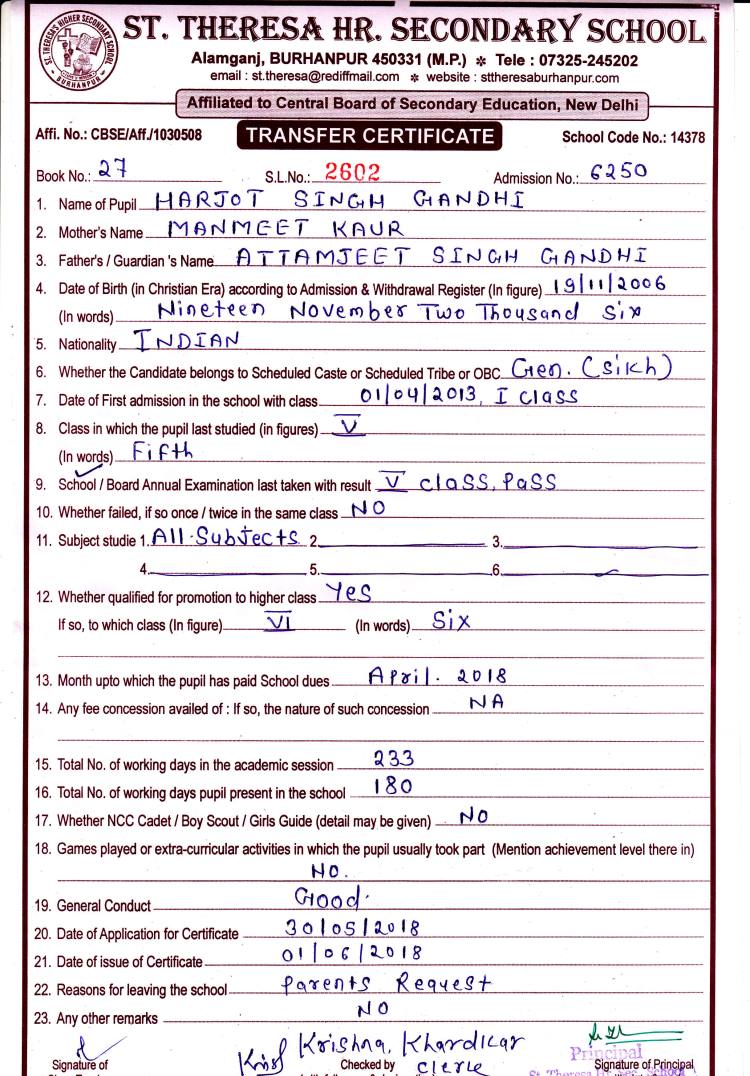 ST. THERESA HR. SECONDARY SCHOOL
ST. THERESA'S HIGHER SECONDARY SCHOOL
BURHANPUR
Alamganj, BURHANPUR 450331 (M.P.) * Tele : 07325-245202
email : st.theresa@rediffmail.com * website : sttheresaburhanpur.com
Affiliated to Central Board of Secondary Education, New Delhi
Affi. No.: CBSE/Aff./1030508 TRANSFER CERTIFICATE School Code No.: 14378
Book No.: 27 S.L.No.: 2602 Admission No.: 6250
1. Name of Pupil HARJOT SINGH GANDHI
2. Mother's Name MANMEET KAUR
3. Father's / Guardian 's Name ATTAMJEET SINGH GANDHI
4. Date of Birth (in Christian Era) according to Admission & Withdrawal Register (In figure) 19/11/2006
(In words) Nineteen November Two Thousand Six
5. Nationality INDIAN
6. Whether the Candidate belongs to Scheduled Caste or Scheduled Tribe or OBC Gen. (Sikh)
7. Date of First admission in the school with class 01/04/2013, I class
8. Class in which the pupil last studied (in figures) V
(In words) Fifth
9. School / Board Annual Examination last taken with result V class, Pass
10. Whether failed, if so once / twice in the same class NO
11. Subject studie 1. All Subjects 2. 3.
4. 5. 6.
12. Whether qualified for promotion to higher class Yes
If so, to which class (In figure) VI (In words) Six
13. Month upto which the pupil has paid School dues April. 2018
14. Any fee concession availed of : If so, the nature of such concession NA
15. Total No. of working days in the academic session 233
16. Total No. of working days pupil present in the school 180
17. Whether NCC Cadet / Boy Scout / Girls Guide (detail may be given) NO
18. Games played or extra-curricular activities in which the pupil usually took part (Mention achievement level there in)
NO.
19. General Conduct Good.
20. Date of Application for Certificate 30/05/2018
21. Date of issue of Certificate 01/06/2018
22. Reasons for leaving the school Parents Request
23. Any other remarks NO
Krishna Khardikar
Principal
Signature of Checked by Clerk Signature of Principal